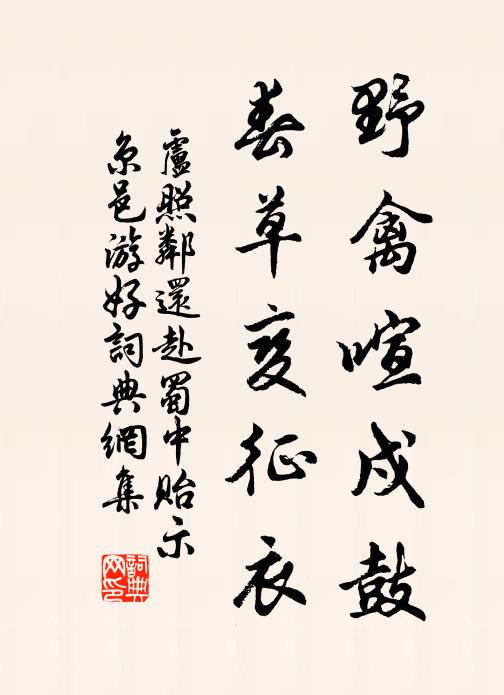 野禽喧戍鼓
春草變征衣
盧照鄰還赴蜀中貽示
京邑游好詞典網集
詞典
网印